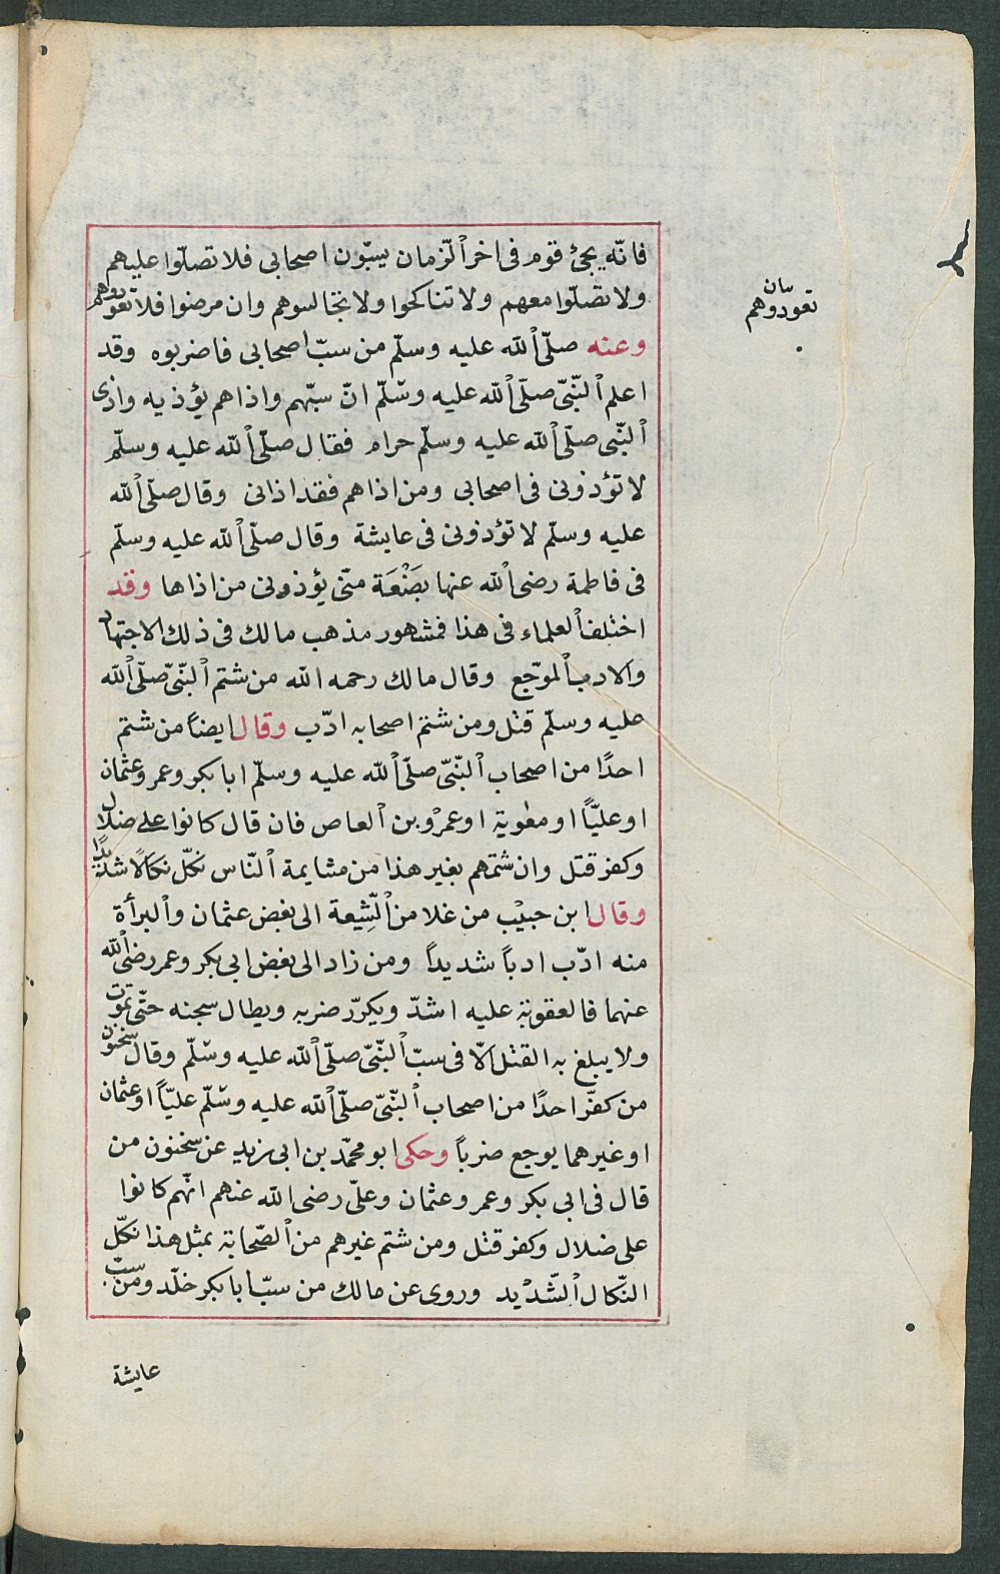 فانّه يجئ قوم فى اخر الزمان يسبّون اصحابى فلا تصلّوا عليهم
ولا تصلّوا معهم ولا تناكحوا ولا تجالسوهم وان مرضوا فلا تعودوهم
بيان
تعودوهم
وعنه صلّى الله عليه وسلّم من سبّ اصحابى فاضربوه وقد
اعلم النّبىّ صلّى الله عليه وسلّم انّ سبّهم واذاهم يؤذيه واذى
النّبى صلّى الله عليه وسلّم حرام فقال صلّى الله عليه وسلّم
لا تؤذونى فى اصحابى ومن اذاهم فقد اذانى وقال صلّى الله
عليه وسلّم لا تؤذونى فى عايشة وقال صلّى الله عليه وسلّم
فى فاطمة رضى الله عنها بَضْعَة منّى يؤذونى من اذاها وقد
اختلف العلماء فى هذا فمشهور مذهب مالك فى ذلك الاجتهاد
والادب الموجع وقال مالك رحمه الله من شتم النّبىّ صلّى الله
عليه وسلّم قتل ومن شتم اصحابه ادّب وقال ايضاً من شتم
احدًا من اصحاب النّبىّ صلّى الله عليه وسلّم ابا بكر وعمر وعثمان
او عليّاً او معٰوية او عمرو بن العاص فان قال كانوا على ضلال
وكفر قتل وان شتمهم بغير هذا من مشايمة النّاس نكّل نكالًا شديدًا
وقال ابن حبيْب من غلا من الشِّيعة الى بغض عثمان والبرأة
منه ادّب ادباً شديداً ومن زاد الى بغض ابى بكر وعمر رضى الله
عنهما فالعقوبة عليه اشدّ ويكرّر ضربه ويطال سجنه حتّى يموت
ولا يبلغ به القتل الّا فى سبّ النّبىّ صلّى الله عليه وسلّم وقال سحنون
من كفّر احدًا من اصحاب النّبىّ صلّى الله عليه وسلّم عليّاً او عثمان
او غيرهما يوجع ضرباً وحكى ابو محمّد بن ابى زيد عن سحنون من
قال فى ابى بكر وعمر وعثمان وعلىّ رضى الله عنهم انّهم كانوا
على ضلال وكفر قتل ومن شتم غيرهم من الصّحابة بمثل هذا نكّل
النّكال الشّديد وروى عن مالك من سبّ ابا بكر جلد ومن سبّ
عايشة